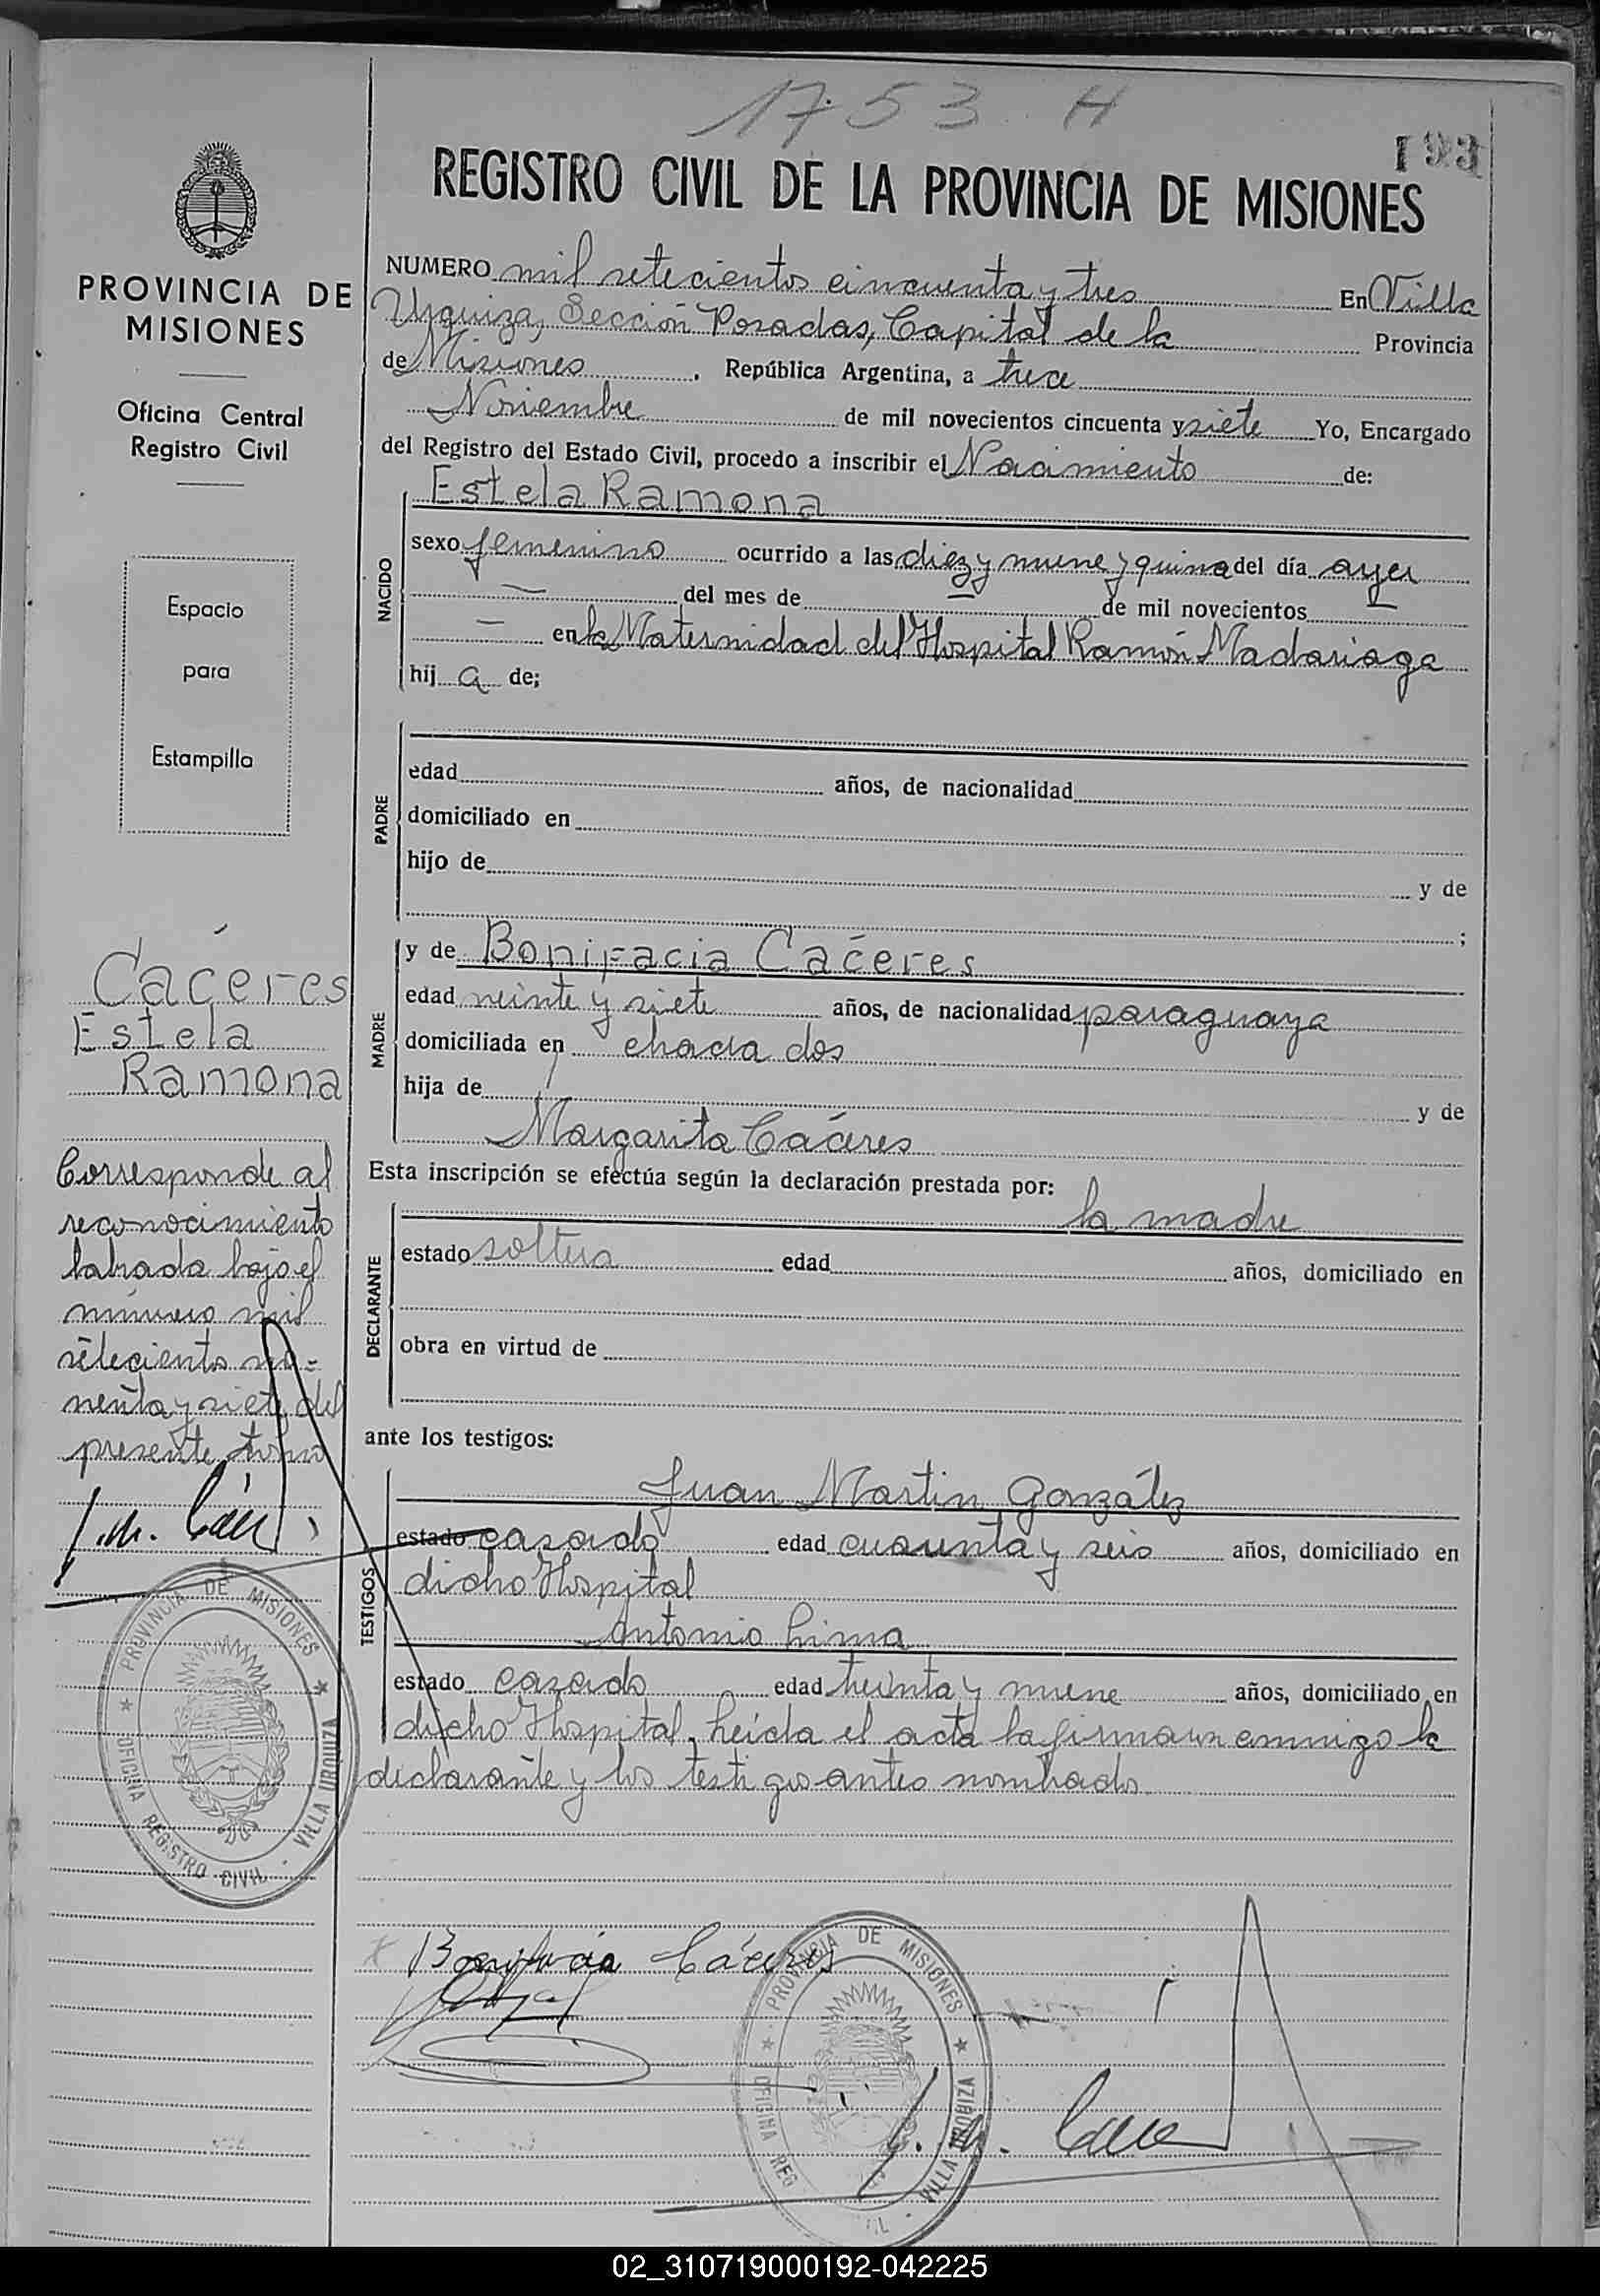 1753 H
193
REGISTRO CIVIL DE LA PROVINCIA DE MISIONES
PROVINCIA DE
MISIONES
Oficina Central
Registro Civil
Espacio
para
Estampilla
Cáceres
Estela
Ramona
Corresponde al
reconocimiento
labrada bajo el
número mil
setecientos no=
venta y siete del
presente tomo
PROVINCIA DE MISIONES
OFICINA REGISTRO CIVIL - VILLA URQUIZA
NUMERO mil setecientos cincuenta y tres En Villa
Urquiza, Sección Posadas, Capital de la Provincia
de Misiones, República Argentina, a trece
Noviembre de mil novecientos cincuenta y siete Yo, Encargado
del Registro del Estado Civil, procedo a inscribir el Nacimiento de:
NACIDO
Estela Ramona
sexo femenino ocurrido a las diez y nueve y quince del día ayer
— del mes de — de mil novecientos —
— en la Maternidad del Hospital Ramón Madariaga
hij a de;
PADRE
edad años, de nacionalidad
domiciliado en
hijo de y de
;
MADRE
y de Bonifacia Cáceres
edad veinte y siete años, de nacionalidad paraguaya
domiciliada en chacra dos
hija de y de
Margarita Cáceres
Esta inscripción se efectúa según la declaración prestada por:
DECLARANTE
la madre
estado soltera edad años, domiciliado en
obra en virtud de
ante los testigos:
TESTIGOS
Juan Martin González
estado casado edad cuarenta y seis años, domiciliado en
dicho Hospital
Antonio Lima
estado casado edad treinta y nueve años, domiciliado en
dicho Hospital. Leída el acta la firmaron conmigo la
declarante y los testigos antes nombrados.
Bonifacia Cáceres
PROVINCIA DE MISIONES
OFICINA REG VILLA URQUIZA
02_310719000192-042225